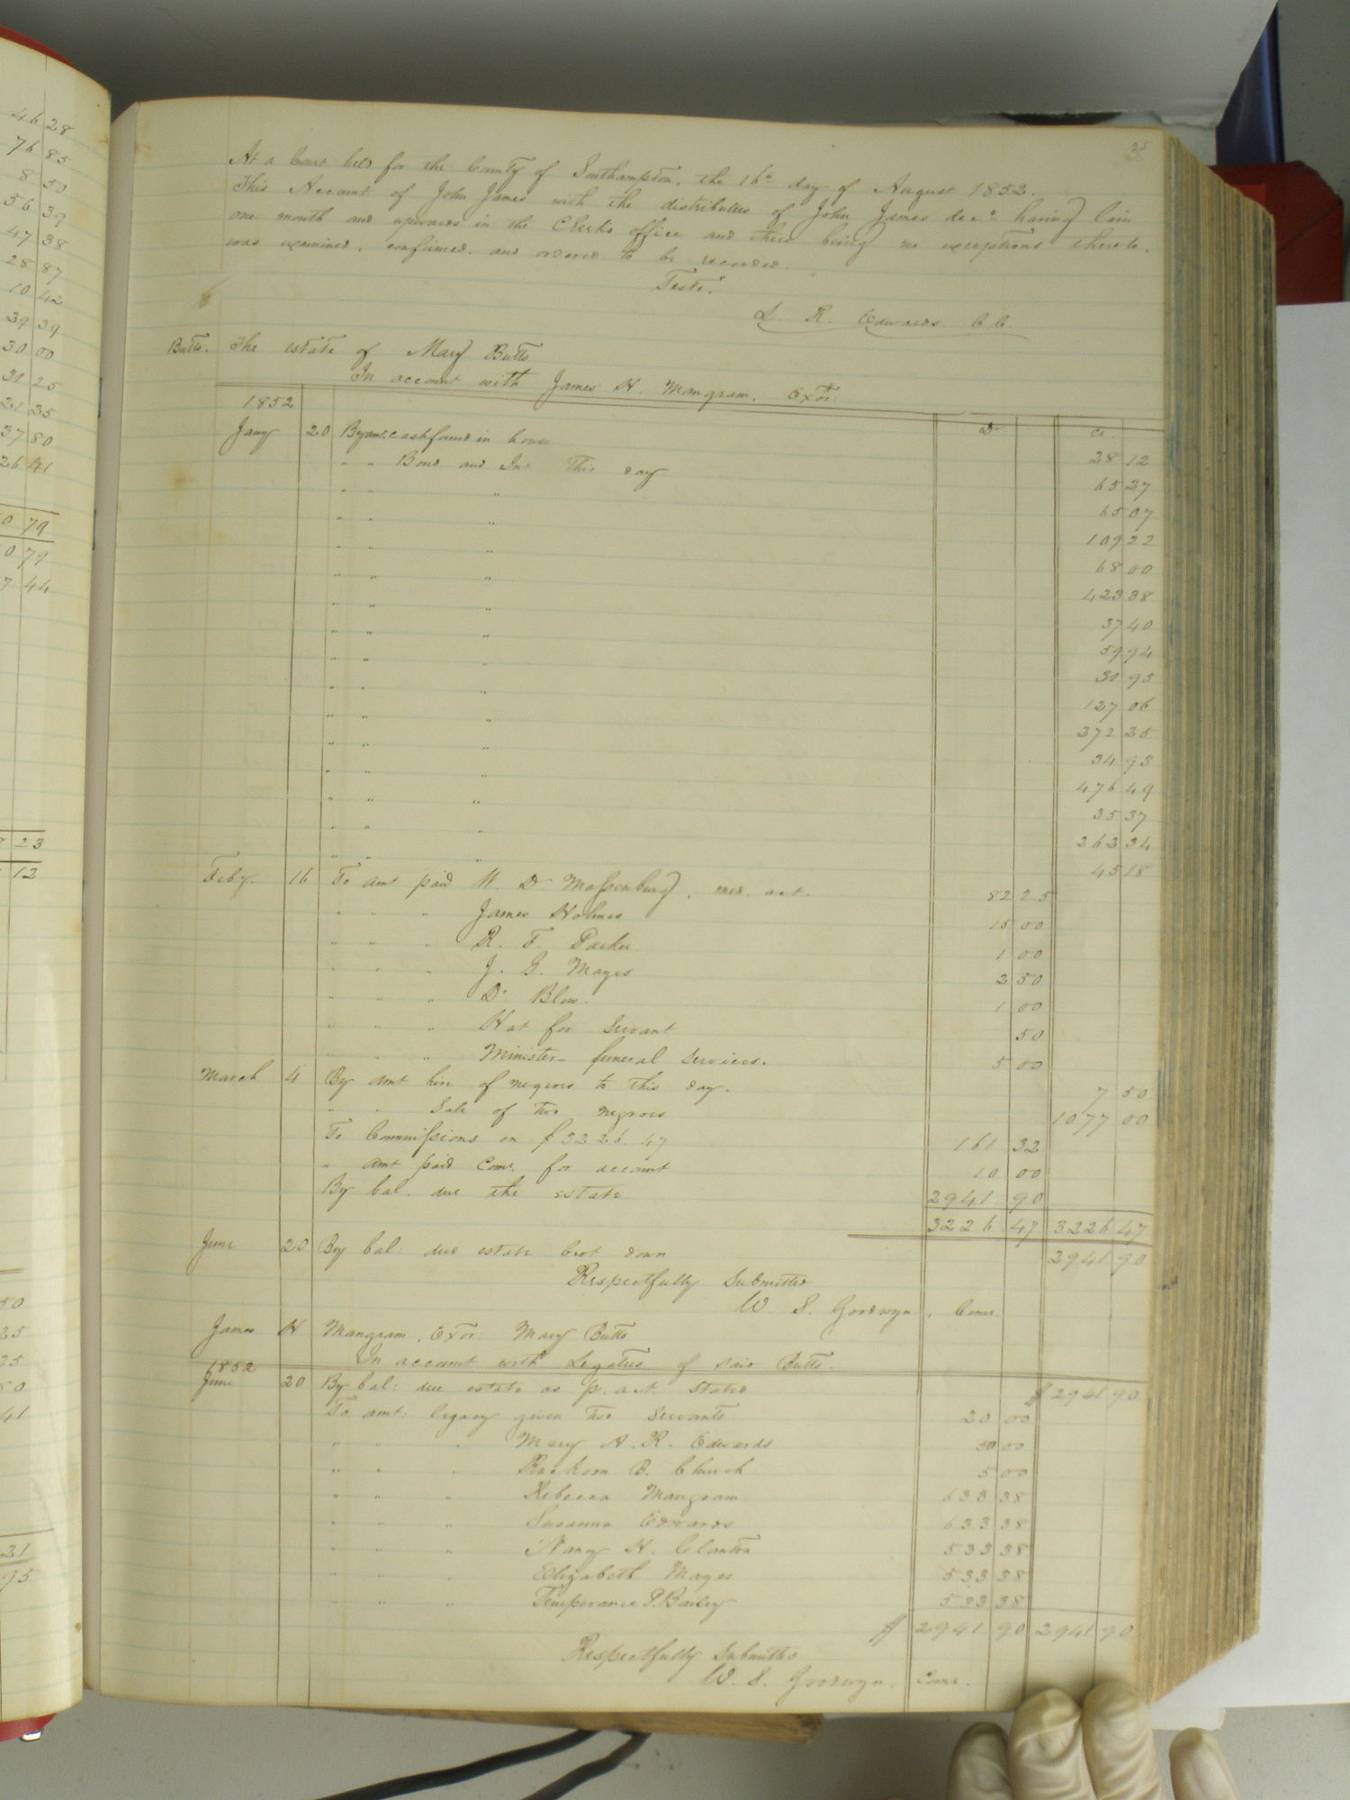 46 28
76 85
8 50
56 39
47 38
28 87
10 42
39 39
30 00
31 25
21 35
37 80
26 41
0 79
0 79
7 44
23
12
50
35
25
50
41
31
95
35
At a Court held for the County of Southampton, the 16th day of August 1852.
This Account of John James with the distributees of John James decd having lain
one month and upwards in the Clerk's office and there being no exceptions thereto.
was examined, confirmed, and ordered to be recorded.
Teste.
L. R. Edwards C. C.
Butts. The estate of Mary Butts
In account with James H. Mangram. Exor.
1852 Dr Cr.
Jany 20 By amt. cash found in house 28 12
" " Bond and Int This day 65 27
" " " 65 07
" " " 109 22
" " " 68 00
" " " 423 38
" " " 37 40
" " " 59 94
" " " 30 95
" " " 127 06
" " " 372 35
" " " 34 95
" " " 476 49
" " " 35 37
" " " 263 34
" " " 45 18
Feby. 16 To amt paid W. D Massenburg, med. act. 82 25
" " " James Holmes 15 00
" " " R. F. Parker 1 00
" " " J. G. Mayes 2 50
" " " Dr. Blow. 1 00
" " " Hat for Servant 50
" " " Minister funeral services. 5 00
March 4 By amt hire of negroes to this day. 7 50
" " Sale of two negroes 1077 00
To Commissions on $3226.47 161 32
" amt paid Comr. for account 10 00
By bal. due the estate 2941 90
3226 47 3226 47
June 20 By bal: due estate brot down 2941 90
Respectfully Submitted
W. S. Goodwyn, Comr.
James H Mangram, Exor. Mary Butts
In account with Legatees of said Butts.
1852
June 20 By bal: due estate as p. act. stated $2941 90
To amt. legacy given two Servants 20 00
" " " Mary A. R. Edwards 50 00
" " " B. Church 5 00
" " " Rebecca Mangram 633 38
" " " Susanna Edwards 633 38
" " " Nancy H. Clanton 533 38
" " " Elizabeth Mayes 533 38
" " " Temperance P. Bailey 533 38
$ 2941 90 2941 90
Respectfully Submitted
W. S. Goodwyn. Comr.